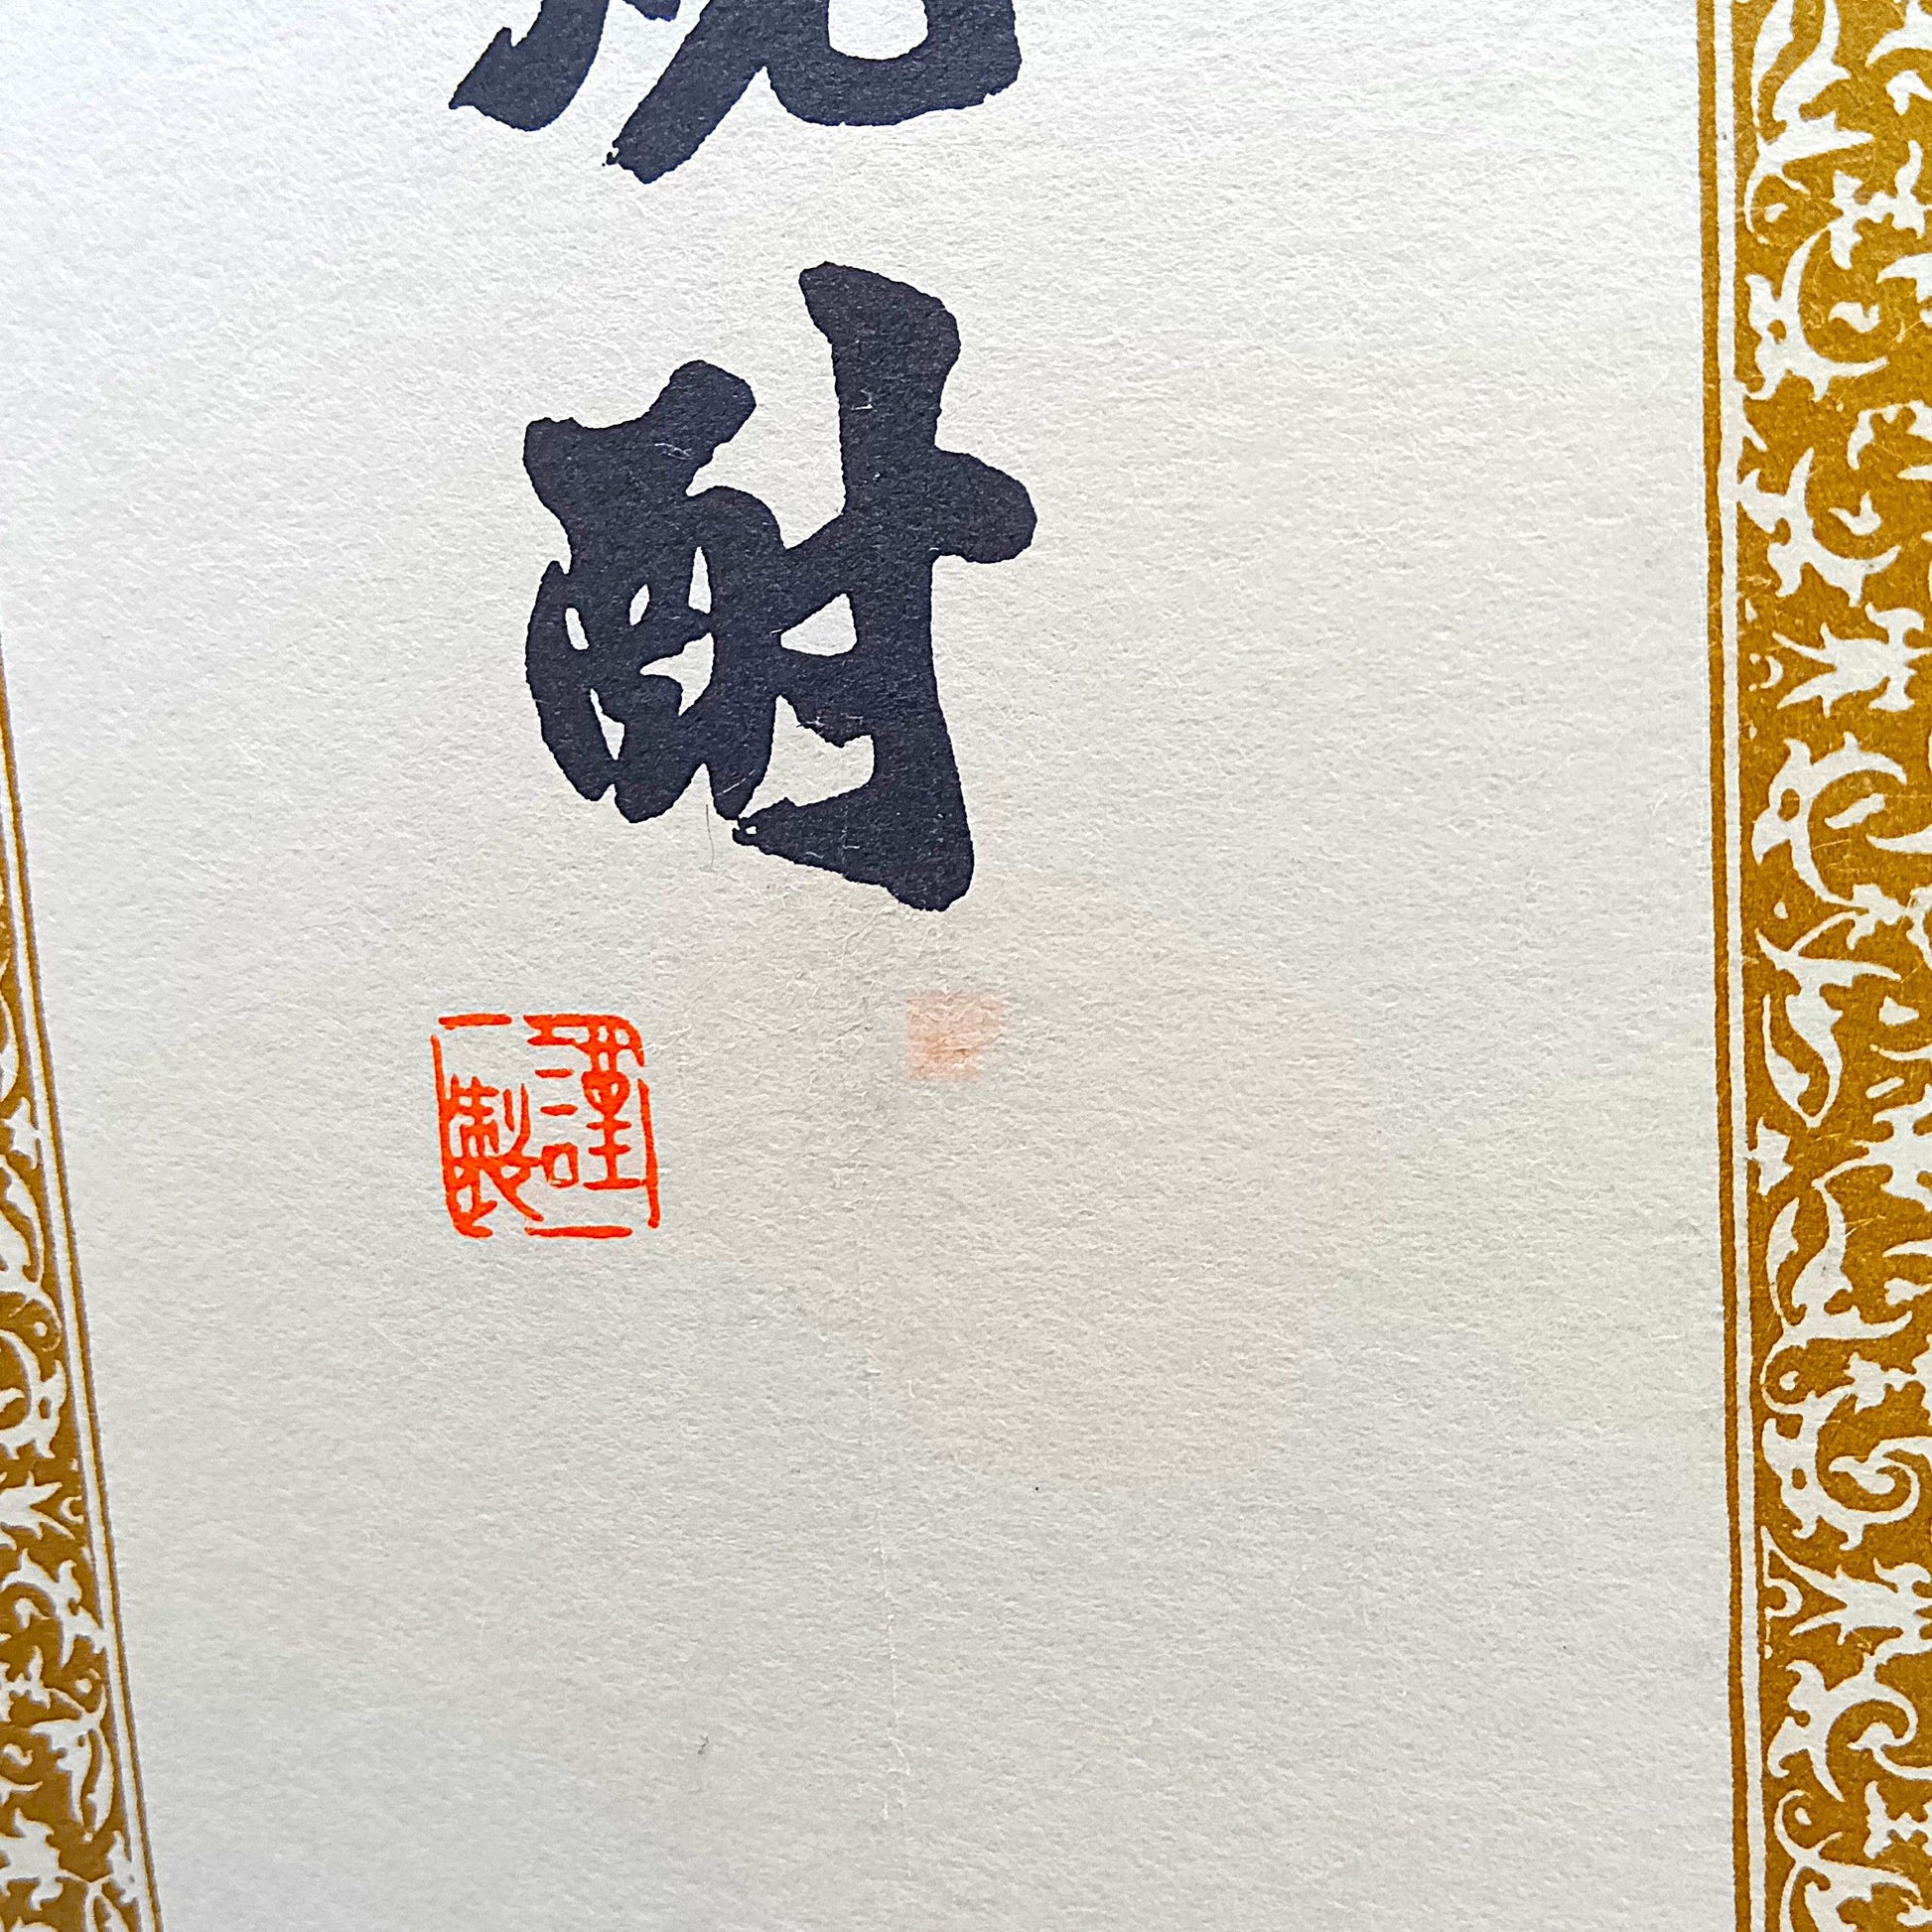 酎
謹製